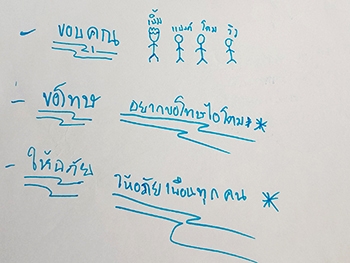 เอิ้ม แบงค์ โดม วิว
- ขอบคุณ
- ขอโทษ อยากขอโทษไอโดม**
- ให้อภัย ให้อภัยเพื่อนทุกคน *